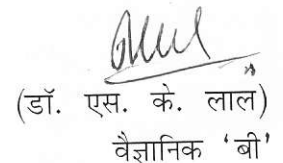 (डॉ. एस. के. लाल)
वैज्ञानिक ‘बी’